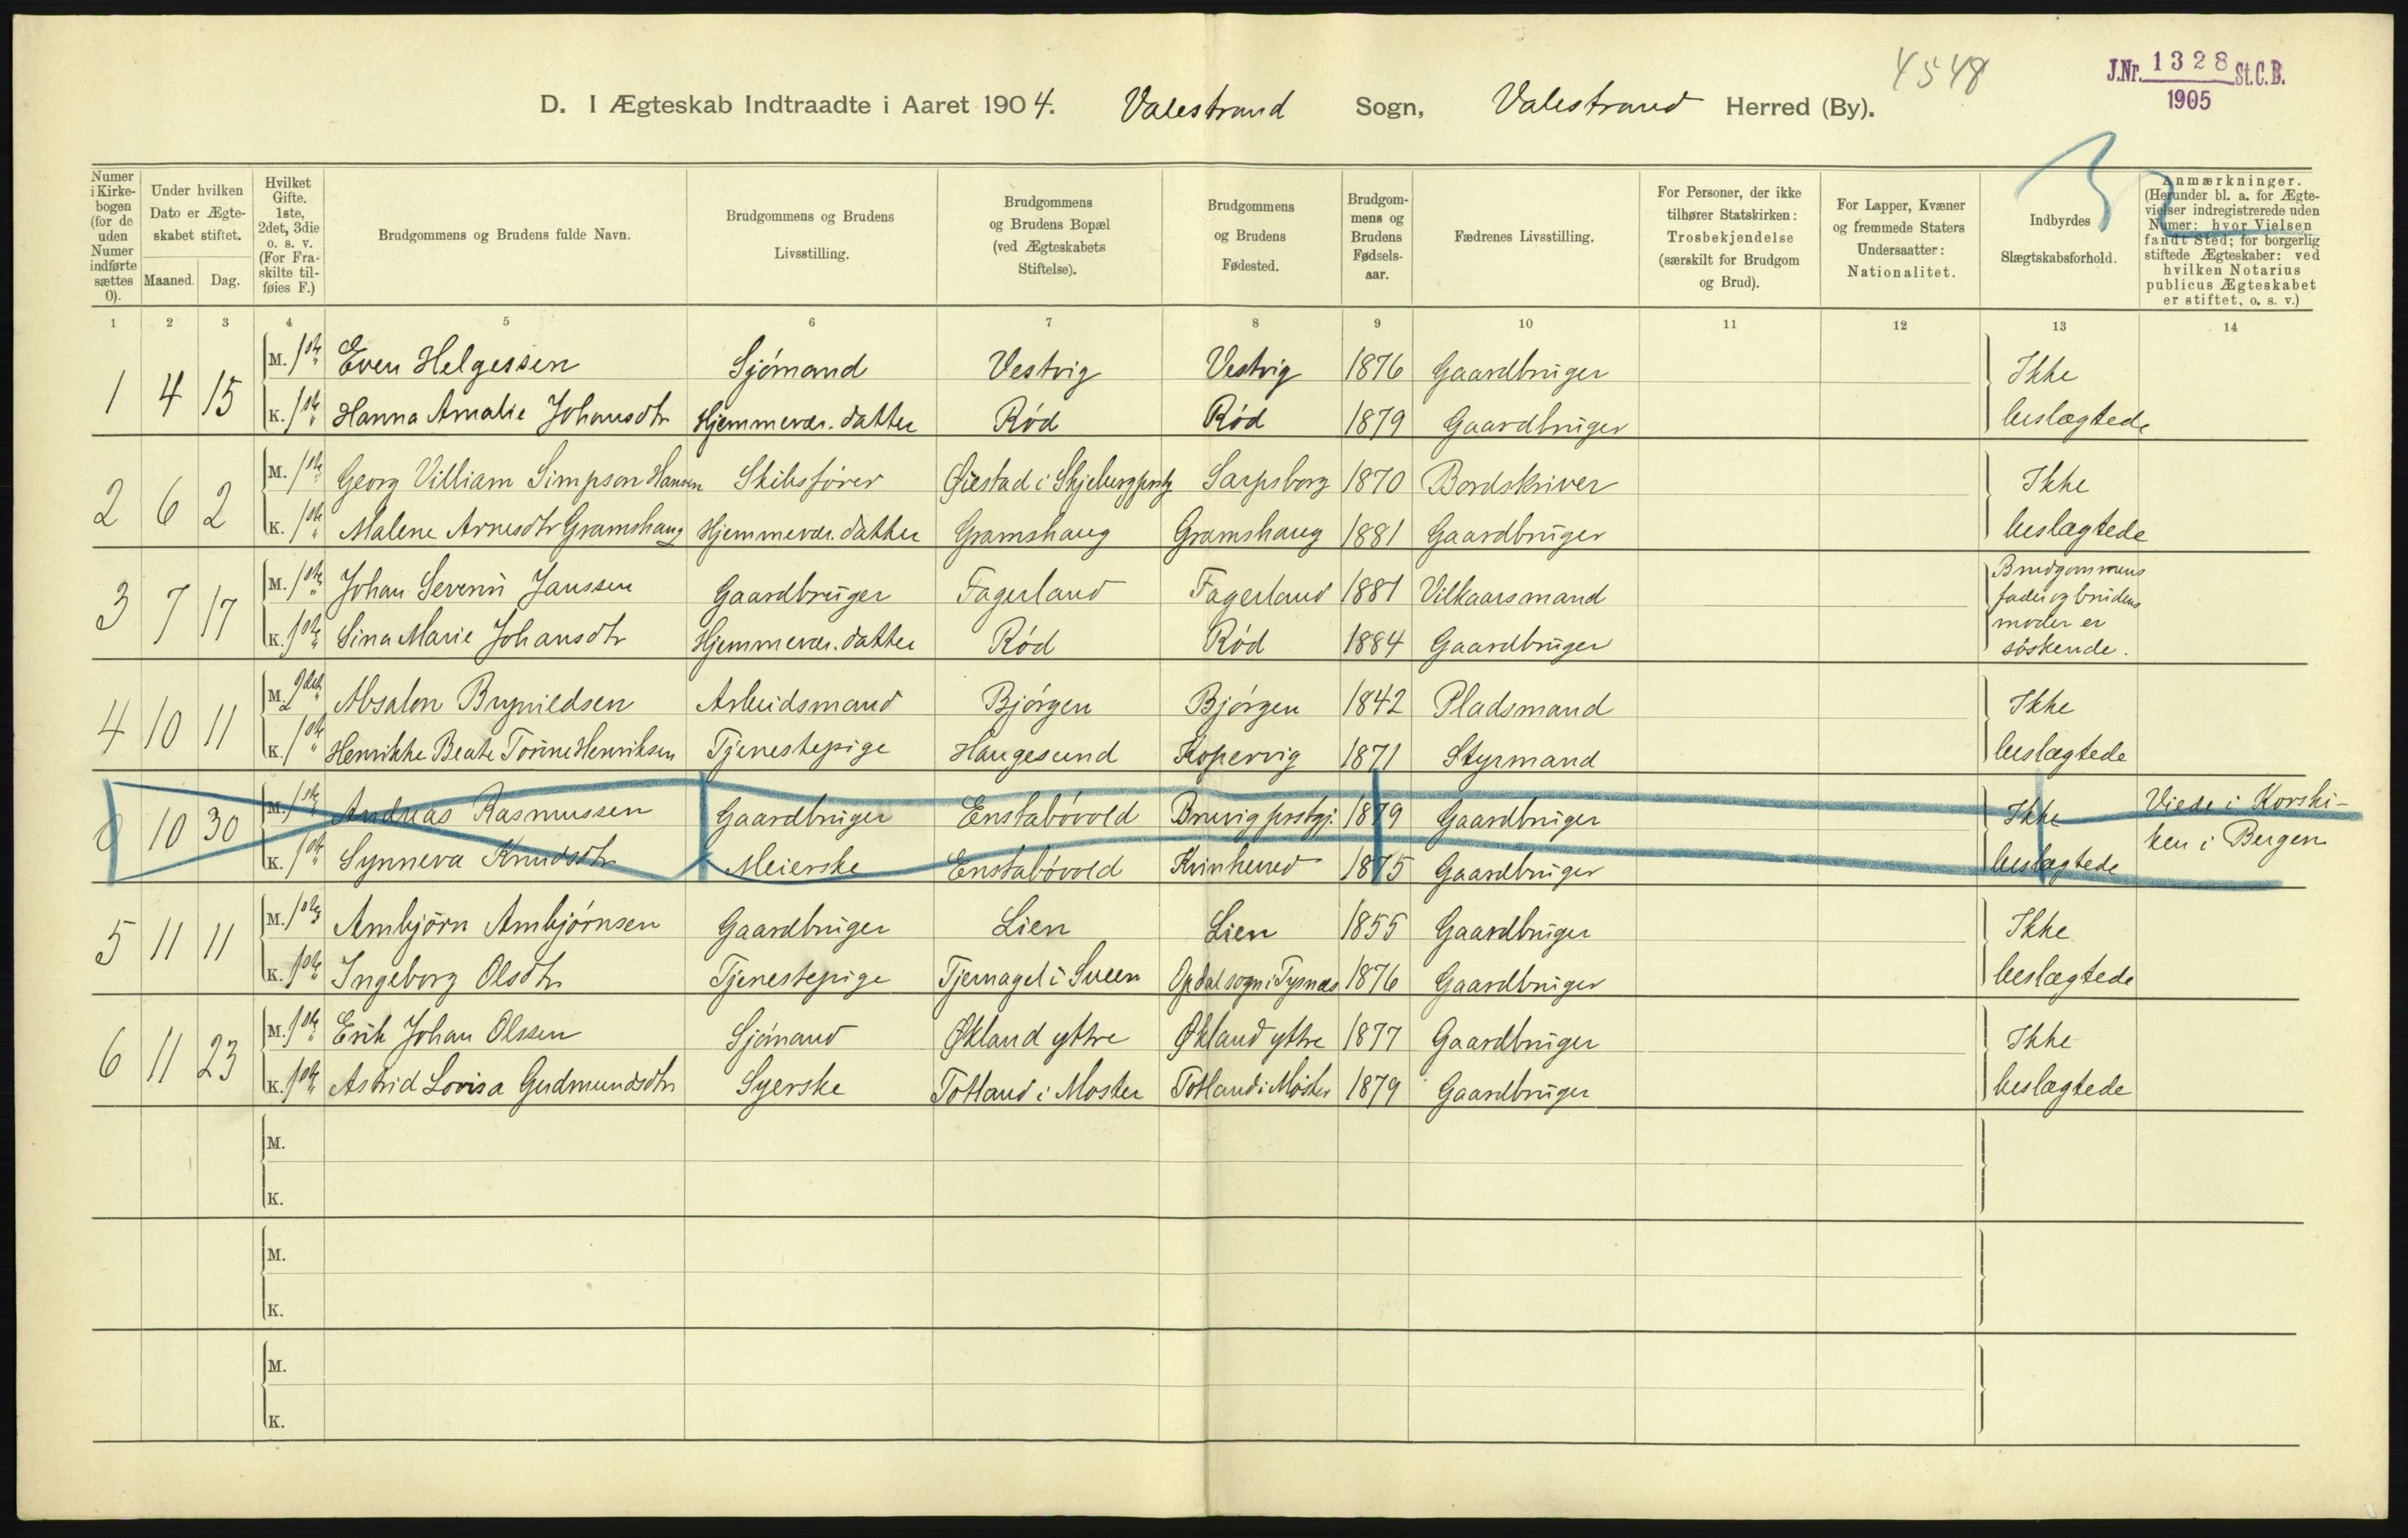 4548
J.Nr. 1328 St.C.B.
1905
D. I Ægteskab Indtraadte i Aaret 1904. Valestrand Sogn, Valestrand Herred (By).
Numer i Kirkebogen (for de uden Numer indførte sættes 0).
Under hvilken Dato er Ægteskabet stiftet.
Maaned. Dag.
Hvilket Gifte. 1ste, 2det, 3die o. s. v. (For Fraskilte tilføies F.)
Brudgommens og Brudens fulde Navn.
Brudgommens og Brudens Livsstilling.
Brudgommens og Brudens Bopæl (ved Ægteskabets Stiftelse).
Brudgommens og Brudens Fødested.
Brudgommens og Brudens Fødselsaar.
Fædrenes Livsstilling.
For Personer, der ikke tilhører Statskirken: Trosbekjendelse (særskilt for Brudgom og Brud).
For Lapper, Kvæner og fremmede Staters Undersaatter: Nationalitet.
Indbyrdes Slægtskabsforhold.
Anmærkninger. (Herunder bl. a. for Ægtevielser indregistrerede uden Numer: hvor Vielsen fandt Sted; for borgerlig stiftede Ægteskaber: ved hvilken Notarius publicus Ægteskabet er stiftet, o. s. v.)
1 2 3 4 5 6 7 8 9 10 11 12 13 14
1 4 15 M. 1ste Even Helgessen Sjómand Vestvig Vestvig 1876 Gaardbrüger Ikke
K. 1ste Hanna Amalie Johansdtr Hjemmevær. datter Ród Ród 1879 Gaardbrüger beslægtede
2 6 2 M. 1ste Georg Villiam Simpson Hansen Skibsfórer Øiestad i Skjebergprstg Sarpsborg 1870 Bordskriver Ikke
K. 1ste Malene Arnesdtr Gramshaug Hjemmevær. datter Gramshaug Gramshaug 1881 Gaardbrüger beslægtede
3 7 17 M. 1ste Johan Severin Janssen Gaardbrüger Fagerland Fagerland 1881 Vilkaarsmand Brudgommens fader og brudens
K. 1ste Sina Marie Johansdtr Hjemmevær. datter Ród Ród 1884 Gaardbrüger moder er söskende.
4 10 11 M. 2det Absalon Brynildsen Arbeidsmand Bjórgen Bjórgen 1842 Pladsmand Ikke
K. 1ste Henrikke Beate Torine Henriksen Tjenestepige Haugesund Kopervig 1871 Styrmand beslægtede
0 10 30 M. 1ste Andreas Rasmussen Gaardbrüger Enstabóvold Bruvig prstgj. 1879 Gaardbrüger Ikke Viede i Korski-
K. 1ste Synneva Knudsdtr Meierske Enstabóvold Kvinherred 1875 Gaardbrüger beslægtede ken i Bergen
5 11 11 M. 1ste Ambjörn Ambjórnsen Gaardbrüger Lien Lien 1855 Gaardbrüger Ikke
K. 1ste Ingeborg Olsdtr Tjenestepige Tjernagel i Sveen Opdal sogn i Tysnæs 1876 Gaardbrüger beslægtede
6 11 23 M. 1ste Erik Johan Olssen Sjómand Økland yttre Økland yttre 1877 Gaardbrüger Ikke
K. 1ste Astrid Lovisa Gudmundsdtr Syerske Totland i Moster Totland i Moster 1879 Gaardbrüger beslægtede
M.
K.
M.
K.
M.
K.